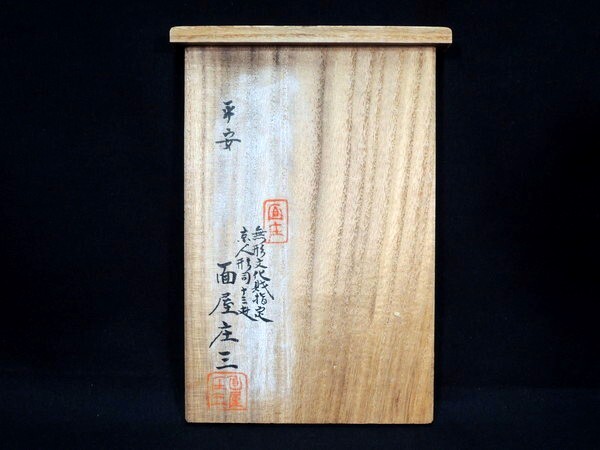 平安
面庄
無形文化財指定
京人形司十三世
面屋庄三